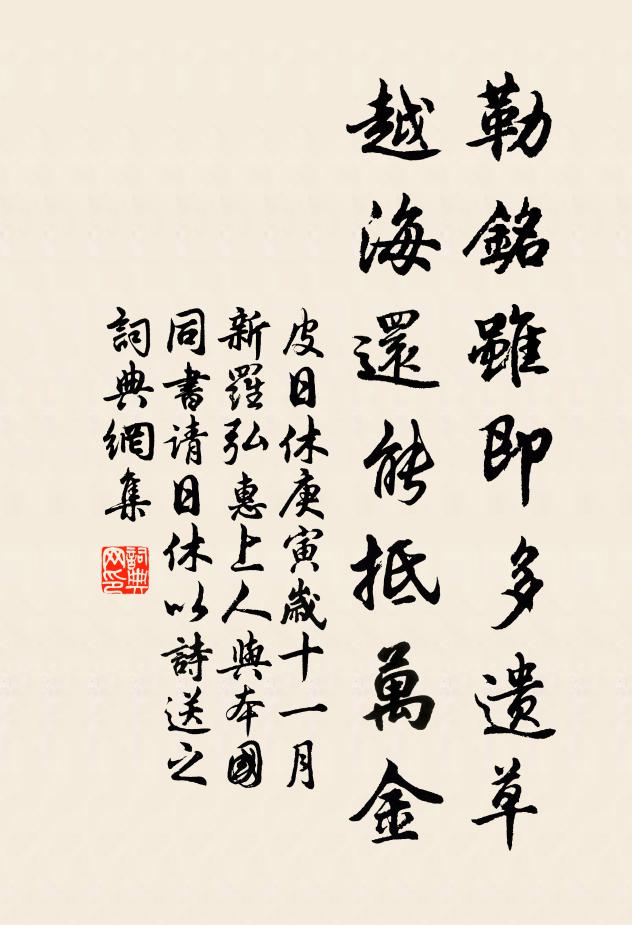 勒銘雖即多遺草
越海還能抵萬金
皮日休庚寅歲十一月
新羅弘惠上人與本國
同書请日休以詩送之
詞典網集
詞典网印